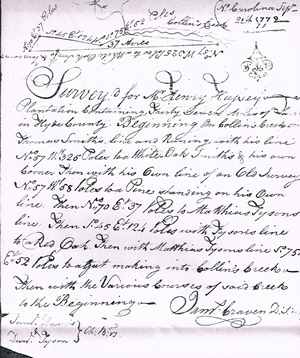 No Carolina Sept
2d 1779
Collins Creek
37 Acres
Survey'd for Mr Henry Hussey a
Plantation Containing Thirty Seven Acres of Land
in Hyde County Beginning On Collins Creek
Thomas Smiths line and Running with his line
No 57 Wt 325 Poles to a White Oak Smiths & his own
Corner Then with his Own line of an Old Survey
No 57 Wt 58 Poles to a Pine standing on his Own
line Then No 70 Et 37 Poles to Matthias Tysons
line Then So 25 Et 124 Poles with Tysons line
to a Red Oak Then with Matthias Tysons line So 75
Et 52 Poles to a gut making into Collins Creek
Then with the Various Courses of said Creek
to the Beginning
Jamt Craven D: S:
Tyson